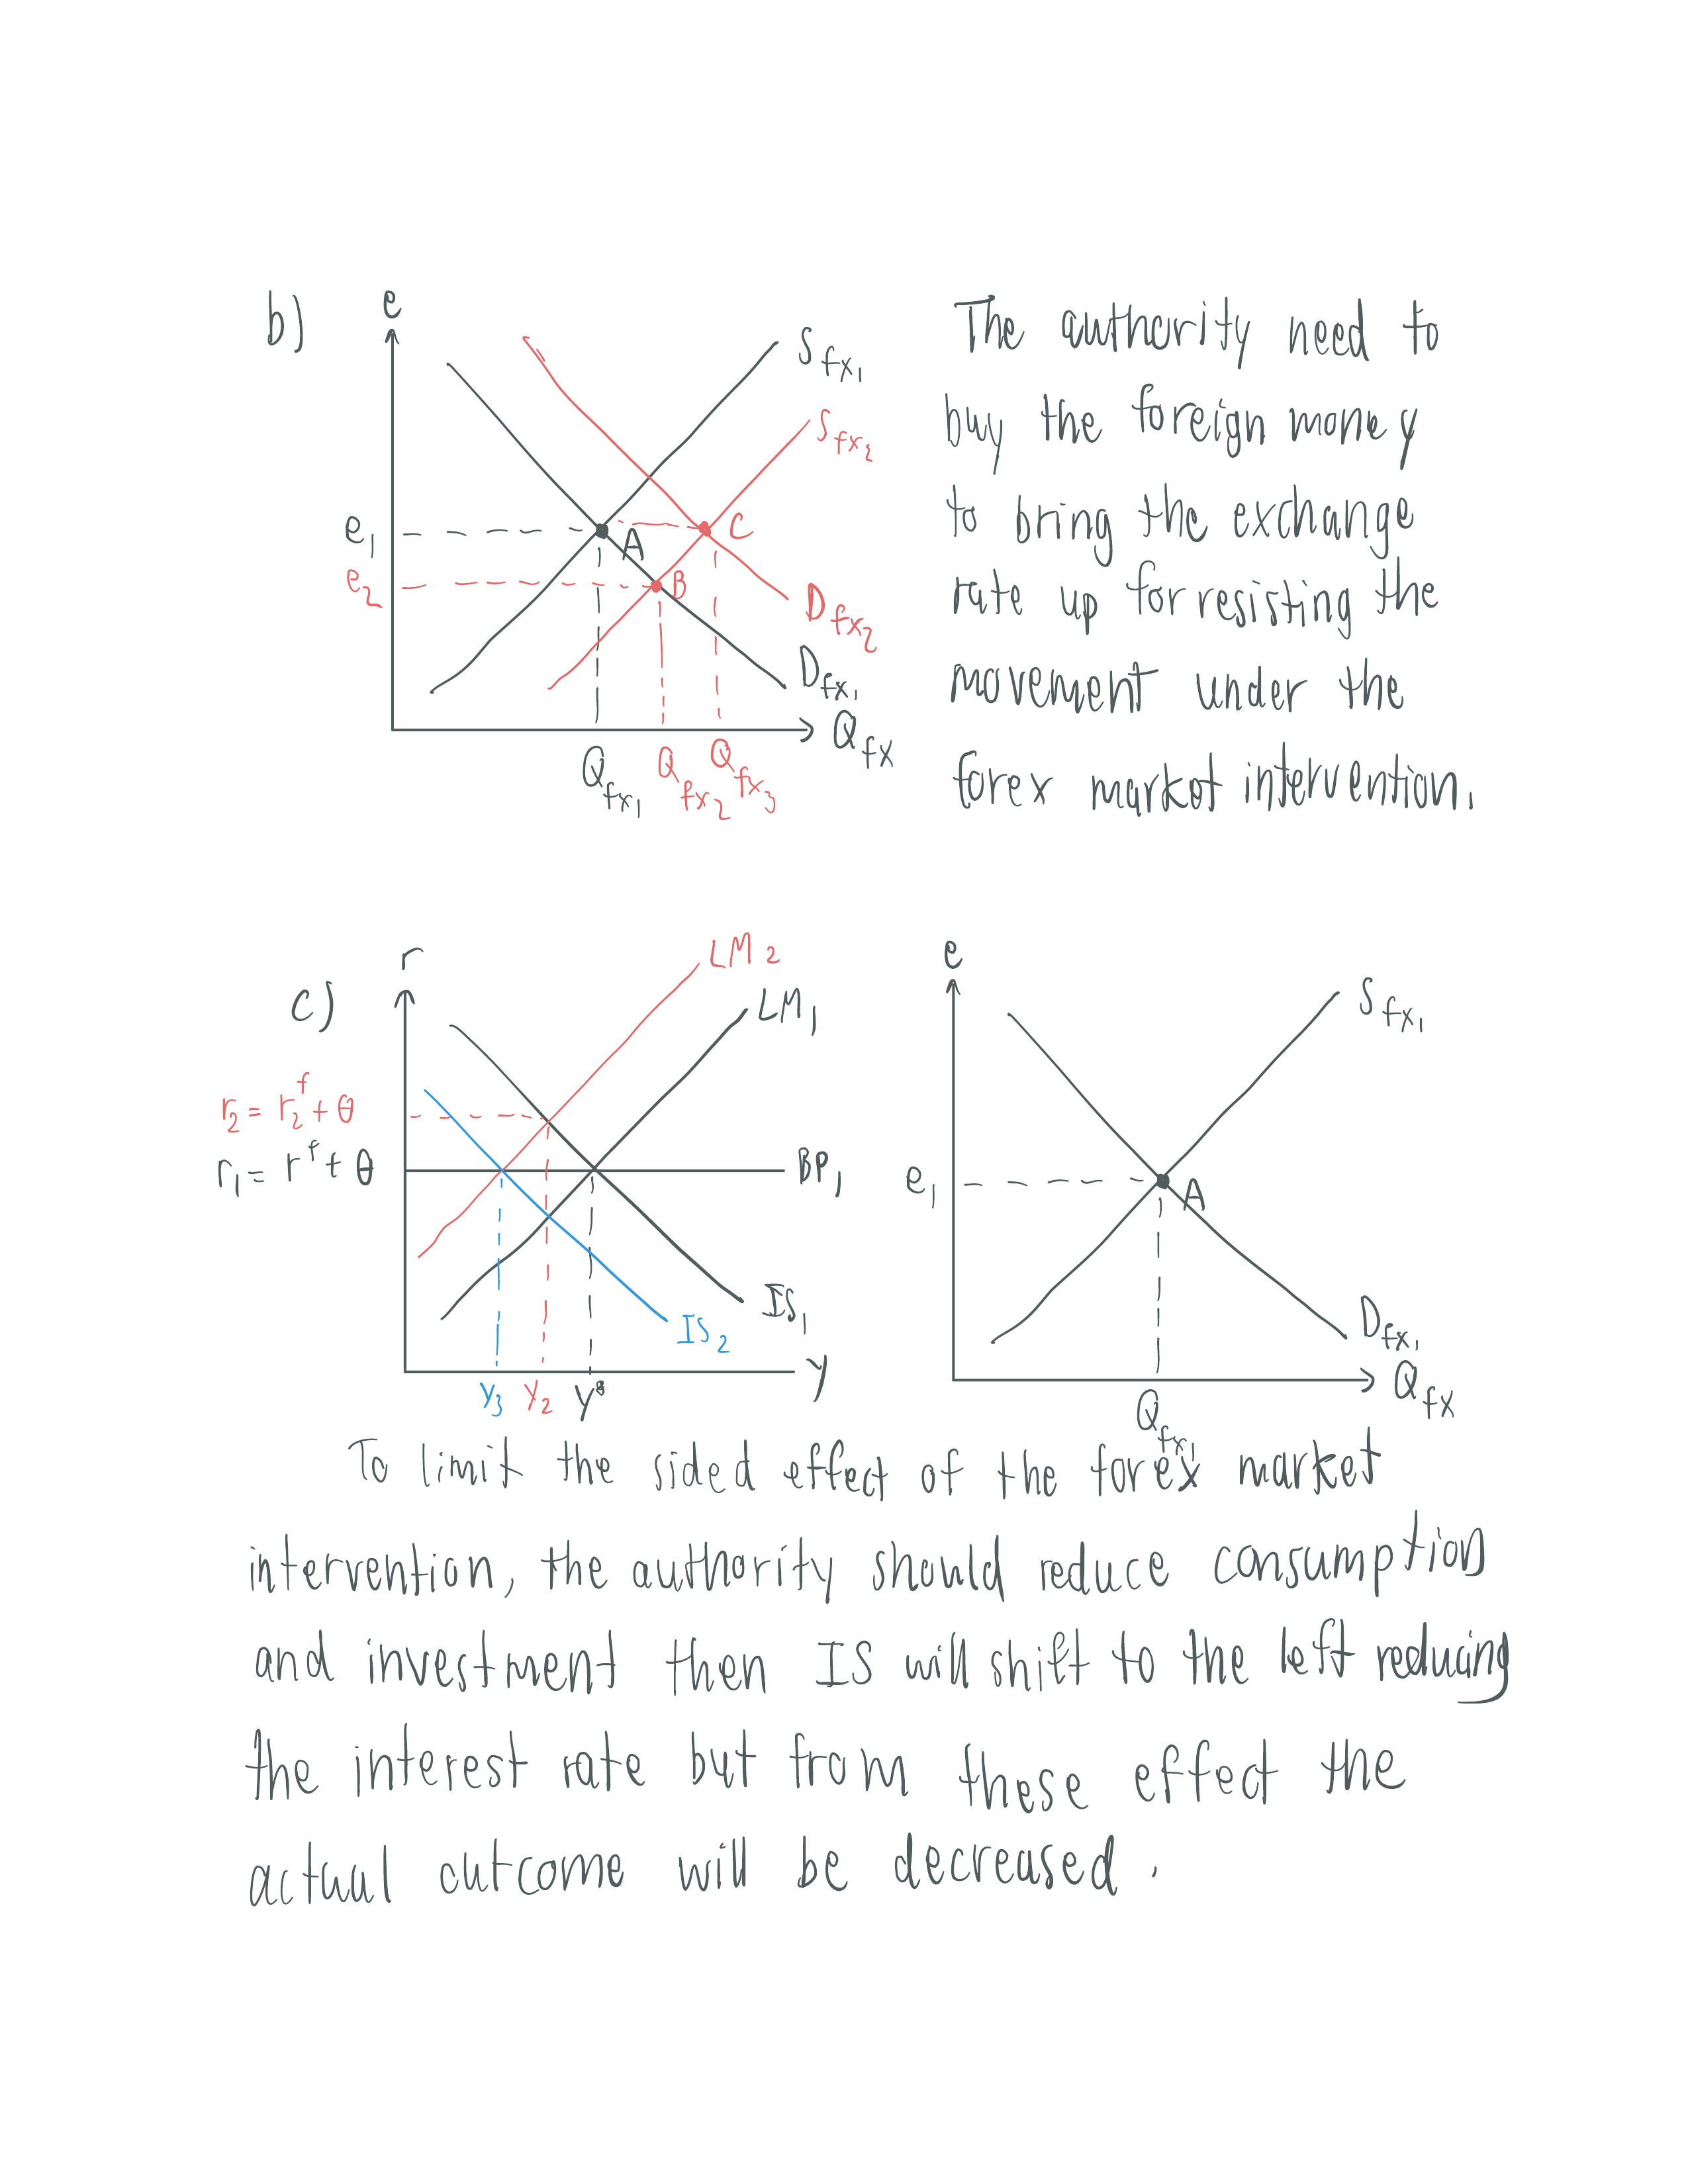 b)
e
S fx1
S fx2
e1
A
C
e2
B
D fx2
D fx1
Q fx
Q fx1
Q fx2
Q fx3
The authority need to
buy the foreign money
to bring the exchange
rate up for resisting the
movement under the
forex market intervention.
c)
r
LM2
LM1
r2 = r2^f + θ
r1 = r^f + θ
BP1
IS1
IS2
y3
y2
y*
y
e
S fx1
e1
A
D fx1
Q fx
Q fx1
To limit the sided effect of the forex market
intervention, the authority should reduce consumption
and investment then IS will shift to the left reducing
the interest rate but from these effect the
actual outcome will be decreased.